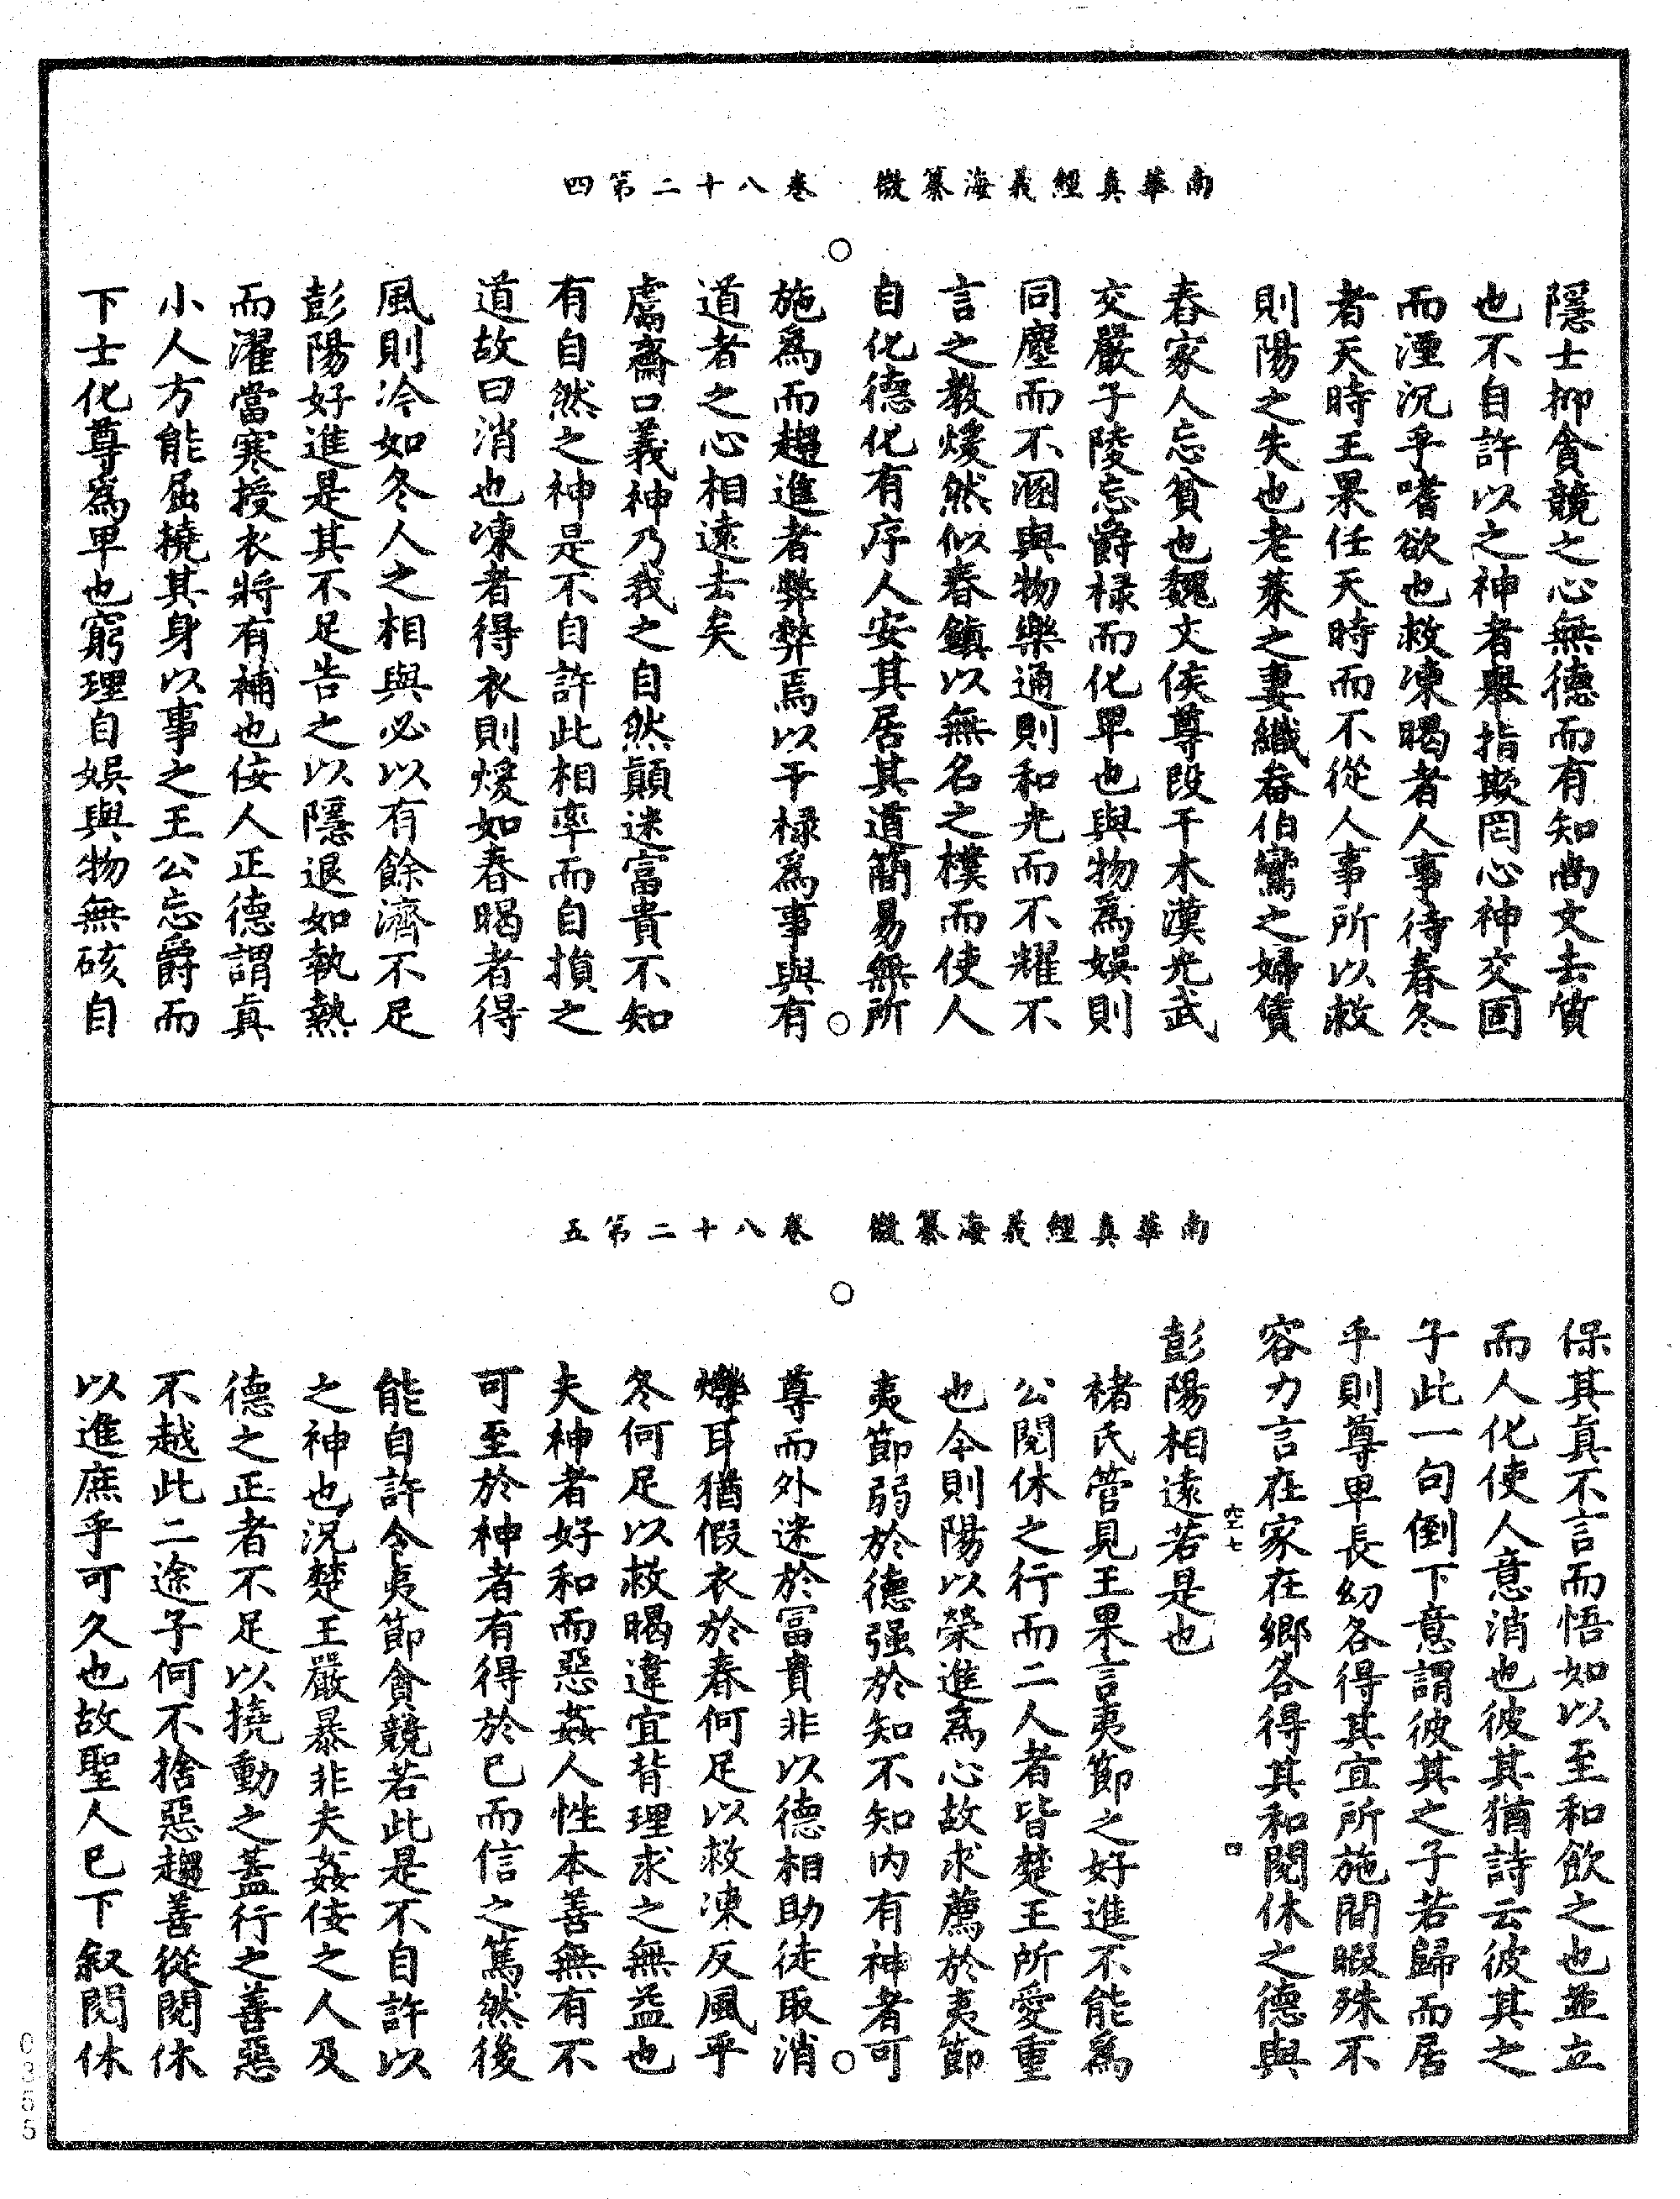 南華真經義海纂微　卷八十二第四
隱士抑貪競之心無德而有知尚文去質
也不自許以之神者舉指欺罔心神交固
而湮沉乎嗜欲也救凍暍者人事待春冬
者天時王果任天時而不從人事所以救
則陽之失也老萊之妻織畚伯鸞之婦賃
舂家人忘貧也魏文侯尊段干木漢光武
交嚴子陵忘爵祿而化卑也與物為娛則
同塵而不溷與物樂通則和光而不耀不
言之教煖然似春鎮以無名之樸而使人
自化德化有序人安其居其道簡易無所
施為而趨進者弊弊焉以干祿為事與有
道者之心相遠去矣
鬳齋口義神乃我之自然顛迷富貴不知
有自然之神是不自許此相率而自損之
道故曰消也凍者得衣則煖如春暍者得
風則冷如冬人之相與必以有餘濟不足
彭陽好進是其不足告之以隱退如執熱
而濯當寒授衣將有補也佞人正德謂真
小人方能屈撓其身以事之王公忘爵而
下士化尊為卑也窮理自娛與物無硋自
南華真經義海纂微　卷八十二第五
保其真不言而悟如以至和飲之也並立
而人化使人意消也彼其猶詩云彼其之
子此一句倒下意謂彼其之子若歸而居
乎則尊卑長幼各得其宜所施閒暇殊不
容力言在家在鄉各得其和閱休之德與
彭陽相遠若是也
褚氏管見王果言夷節之好進不能為
公閱休之行而二人者皆楚王所愛重
也今則陽以榮進為心故求薦於夷節
夷節弱於德强於知不知內有神者可
尊而外迷於冨貴非以德相助徒取消
爍耳猶假衣於春何足以救凍反風乎
冬何足以救暍違宜背理求之無益也
夫神者好和而惡姦人性本善無有不
可至於神者有得於已而信之篤然後
能自許令夷節貪競若此是不自許以
之神也況楚王嚴暴非夫姦佞之人及
德之正者不足以撓動之蓋行之善惡
不越此二途子何不捨惡趨善從閱休
以進庶乎可久也故聖人已下叙閱休
四
0355